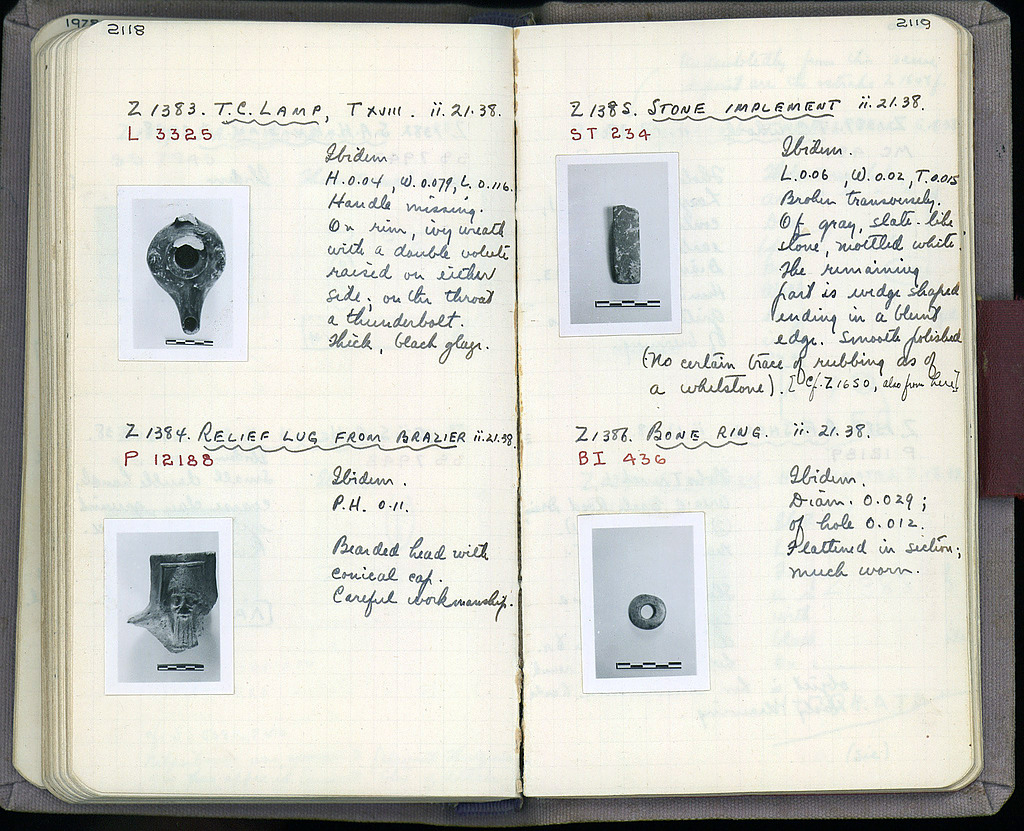 1978
2118
Z 1383. T.C. LAMP, T XVIII. ii.21.38.
L 3325
Ibidem.
H. 0.04, W. 0.079, L. 0.116.
Handle missing.
On rim, ivy wreath
with a double volute
raised on either
side; on the throat
a thunderbolt.
Thick, black glaze.
Z 1384. RELIEF LUG FROM BRAZIER ii.21.38
P 12188
Ibidem.
P.H. 0.11.
Bearded head with
conical cap.
Careful workmanship.
2119
Z 1385. STONE IMPLEMENT ii.21.38.
ST 234
Ibidem.
L. 0.06, W. 0.02, T. 0.015
Broken transversely.
Of gray, slate-like
stone, mottled white.
The remaining
part is wedge shaped
ending in a blunt
edge. Smooth polished
(No certain trace of rubbing as of
a whetstone). [Cf. Z 1650, also from here]
Z 1386. BONE RING. ii.21.38.
BI 436
Ibidem.
Diam. 0.029;
of hole 0.012.
Flattened in section;
much worn.